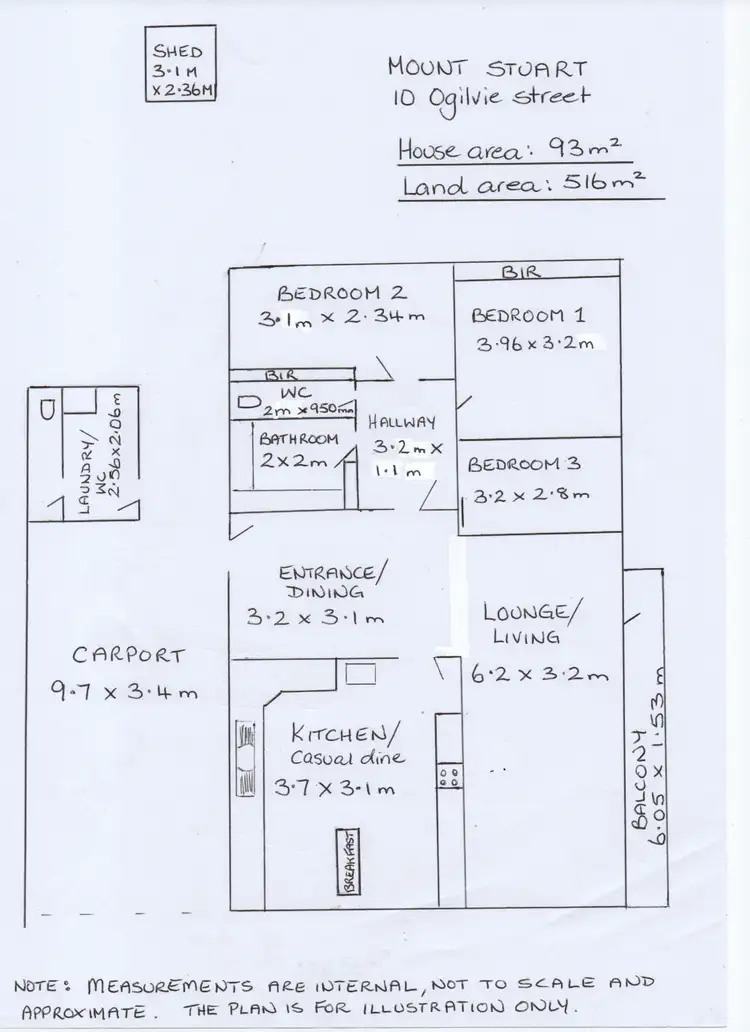 SHED
3.1M
x 2.36M
MOUNT STUART
10 Ogilvie street
House area: 93m²
Land area: 516m²
BIR
BEDROOM 2
3.1m x 2.34m
BEDROOM 1
3.96 x 3.2m
BIR
WC
2m x 950mm
HALLWAY
3.2m x
1.1m
BATHROOM
2 x 2m
LAUNDRY/
WC
2.56 x 2.06m
BEDROOM 3
3.2 x 2.8m
ENTRANCE/
DINING
3.2 x 3.1m
LOUNGE/
LIVING
6.2 x 3.2m
CARPORT
9.7 x 3.4m
KITCHEN/
Casual dine
3.7 x 3.1m
BALCONY
6.05 x 1.53m
BREAKFAST
NOTE: MEASUREMENTS ARE INTERNAL, NOT TO SCALE AND
APPROXIMATE. THE PLAN IS FOR ILLUSTRATION ONLY.